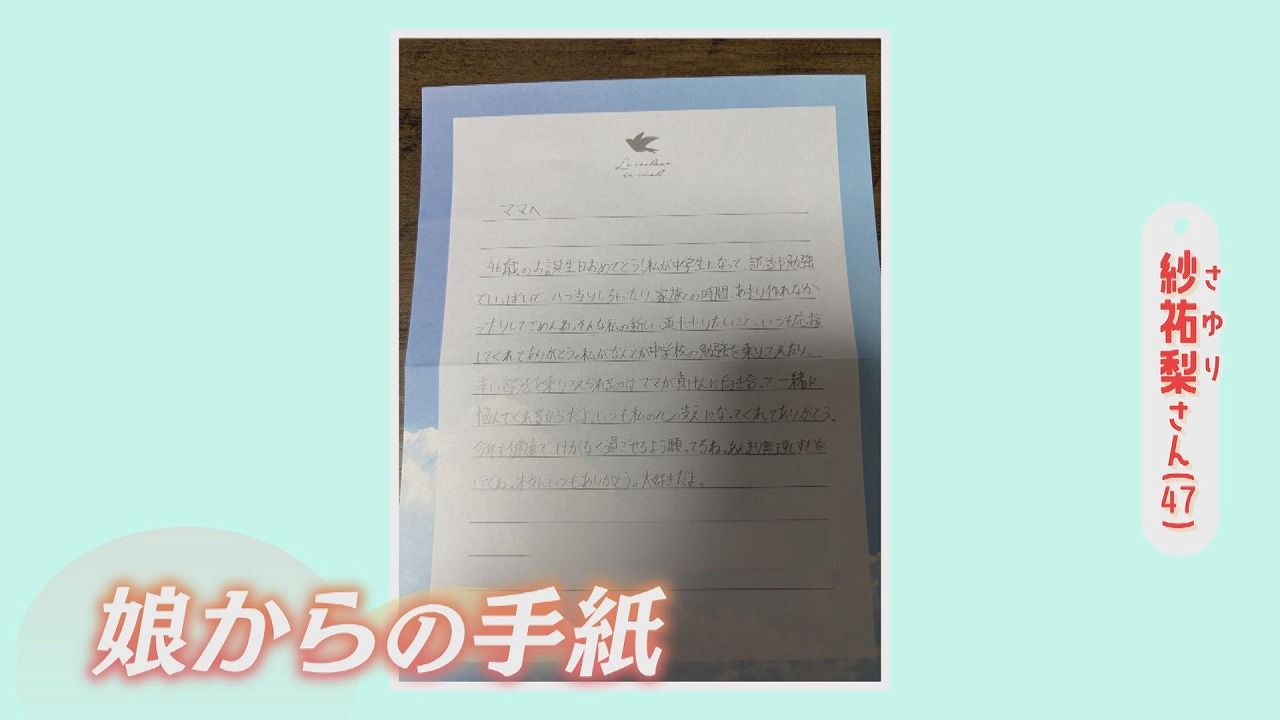 ママへ
46歳のお誕生日おめでとう!私が中学生になって 部活や勉強
でいっぱいで、八つ当りしちゃったり、家族との時間、あまり作れなか
ったりしてごめんね。そんな私の新しい道ややりたいこと、いつも応援
してくれてありがとう。私がなんとか中学校の勉強を乗りこえたり、
辛い部活を乗りこえられるのはママが真けんに向き合って、一緒に
悩んでくれるからだよ。いつも私の心の支えになってくれてありがとう。
今年も健康で、けがなく過ごせるよう願ってるね。あんまり無理しすぎな
いでね。本当にいつもありがとう。大好きだよ。
娘からの手紙
紗祐梨さん(47)
さゆり